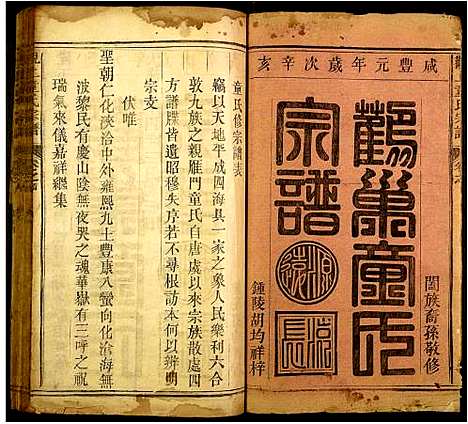 咸豐元年歲次辛亥
鸛巢童氏
宗譜
源遠
流長
闔族裔孫敬修
鍾陵胡均祥梓
童氏修宗譜表
竊以天地平成四海具一家之象人民樂利六合
敦九族之親雁門童氏自唐虞以來宗族散處四
方譜牒皆遺昭穆失序若不尋根動本何以辨明
宗支
伏唯
聖朝仁化浹洽中外雍熙九土豐康八蠻向化滄海無
波黎民有慶山陰無夜哭之魂華嶽有三呼之祝
瑞氣來儀嘉祥繼集